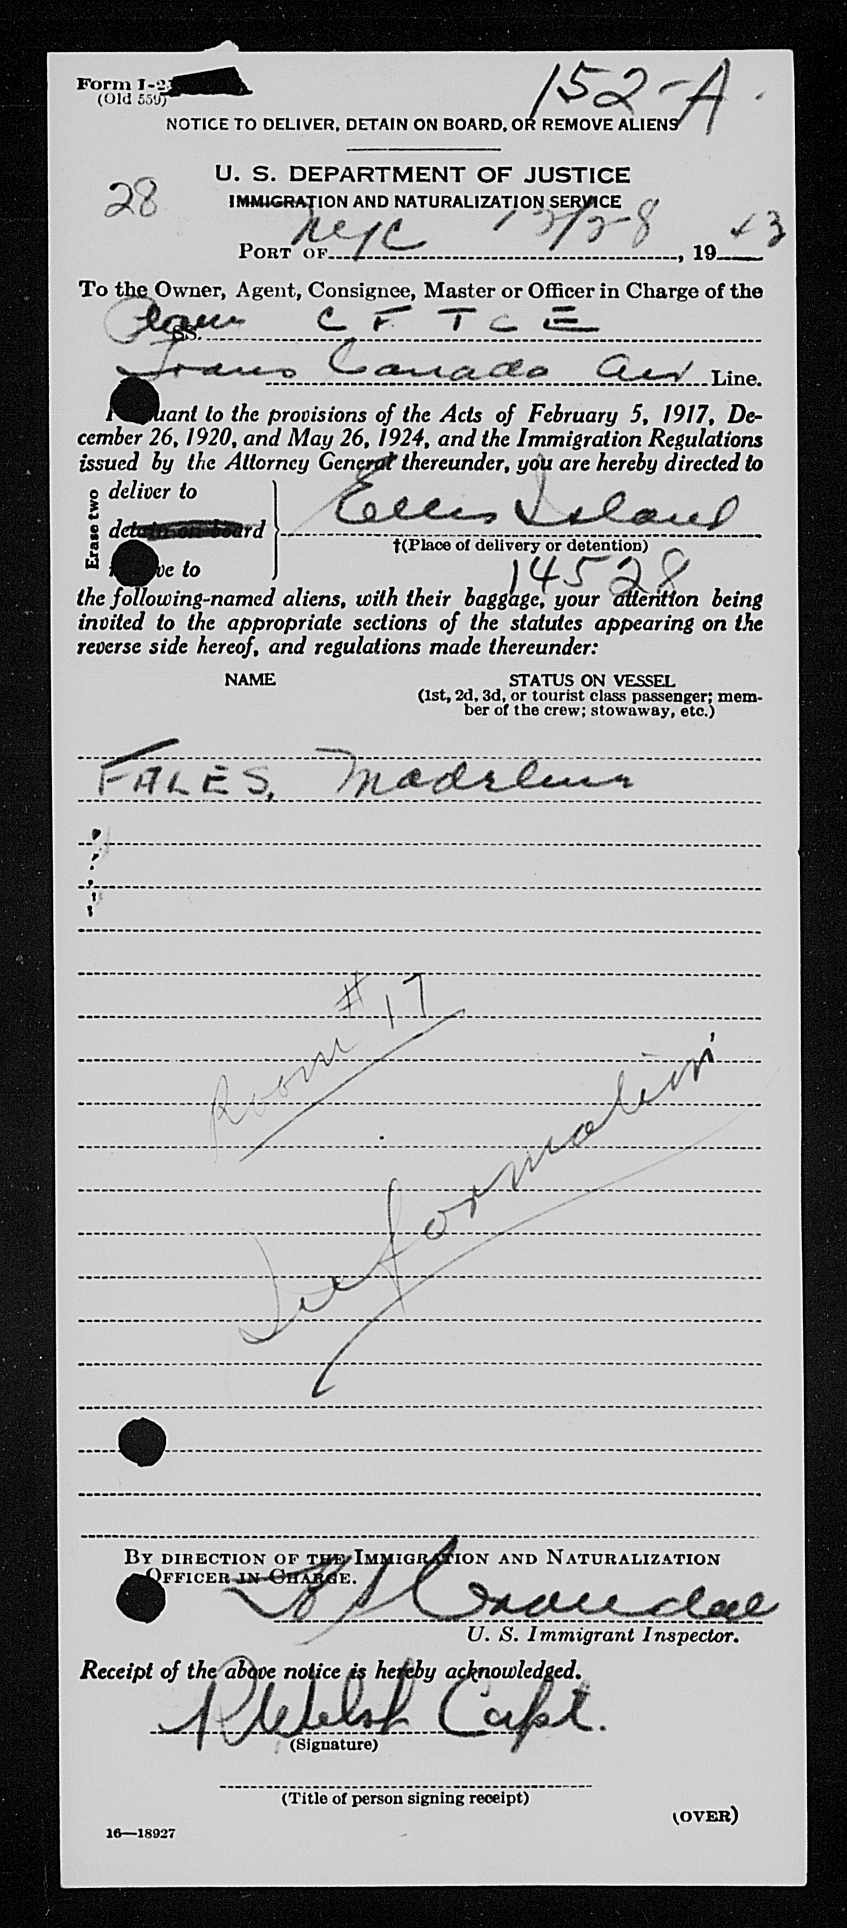 Form I-2
152-A.
(Old 559)
NOTICE TO DELIVER, DETAIN ON BOARD, OR REMOVE ALIENS
U. S. DEPARTMENT OF JUSTICE
28
IMMIGRATION AND NATURALIZATION SERVICE
PORT OF NYC 12/28, 1943
To the Owner, Agent, Consignee, Master or Officer in Charge of the
Plane SS. C F T C E
Trans Canada Air Line.
uant to the provisions of the Acts of February 5, 1917, De-
cember 26, 1920, and May 26, 1924, and the Immigration Regulations
issued by the Attorney General thereunder, you are hereby directed to
Erase two
deliver to
Ellis Island
detain on board
†(Place of delivery or detention)
ve to
14528
the following-named aliens, with their baggage, your attention being
invited to the appropriate sections of the statutes appearing on the
reverse side hereof, and regulations made thereunder:
NAME STATUS ON VESSEL
(1st, 2d, 3d, or tourist class passenger; mem-
ber of the crew; stowaway, etc.)
FALES, Madeleine
Room #17
Information
BY DIRECTION OF THE IMMIGRATION AND NATURALIZATION
OFFICER IN CHARGE.
Crandall
U. S. Immigrant Inspector.
Receipt of the above notice is hereby acknowledged.
R Welsh Capt.
(Signature)
(Title of person signing receipt)
(OVER)
16—18927